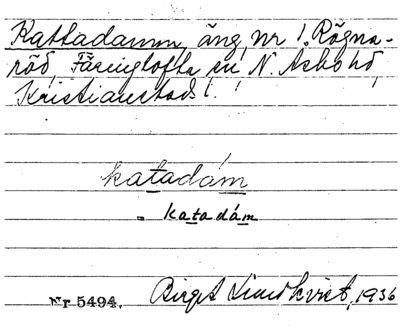 Kattadamm, äng, nr 1. Rögna-
röd, Färingtofta sn, N. Åsbo hd,
Kristianstads l.
katadám
. katadám
Nr 5494. Birgit Lindkvist, 1936